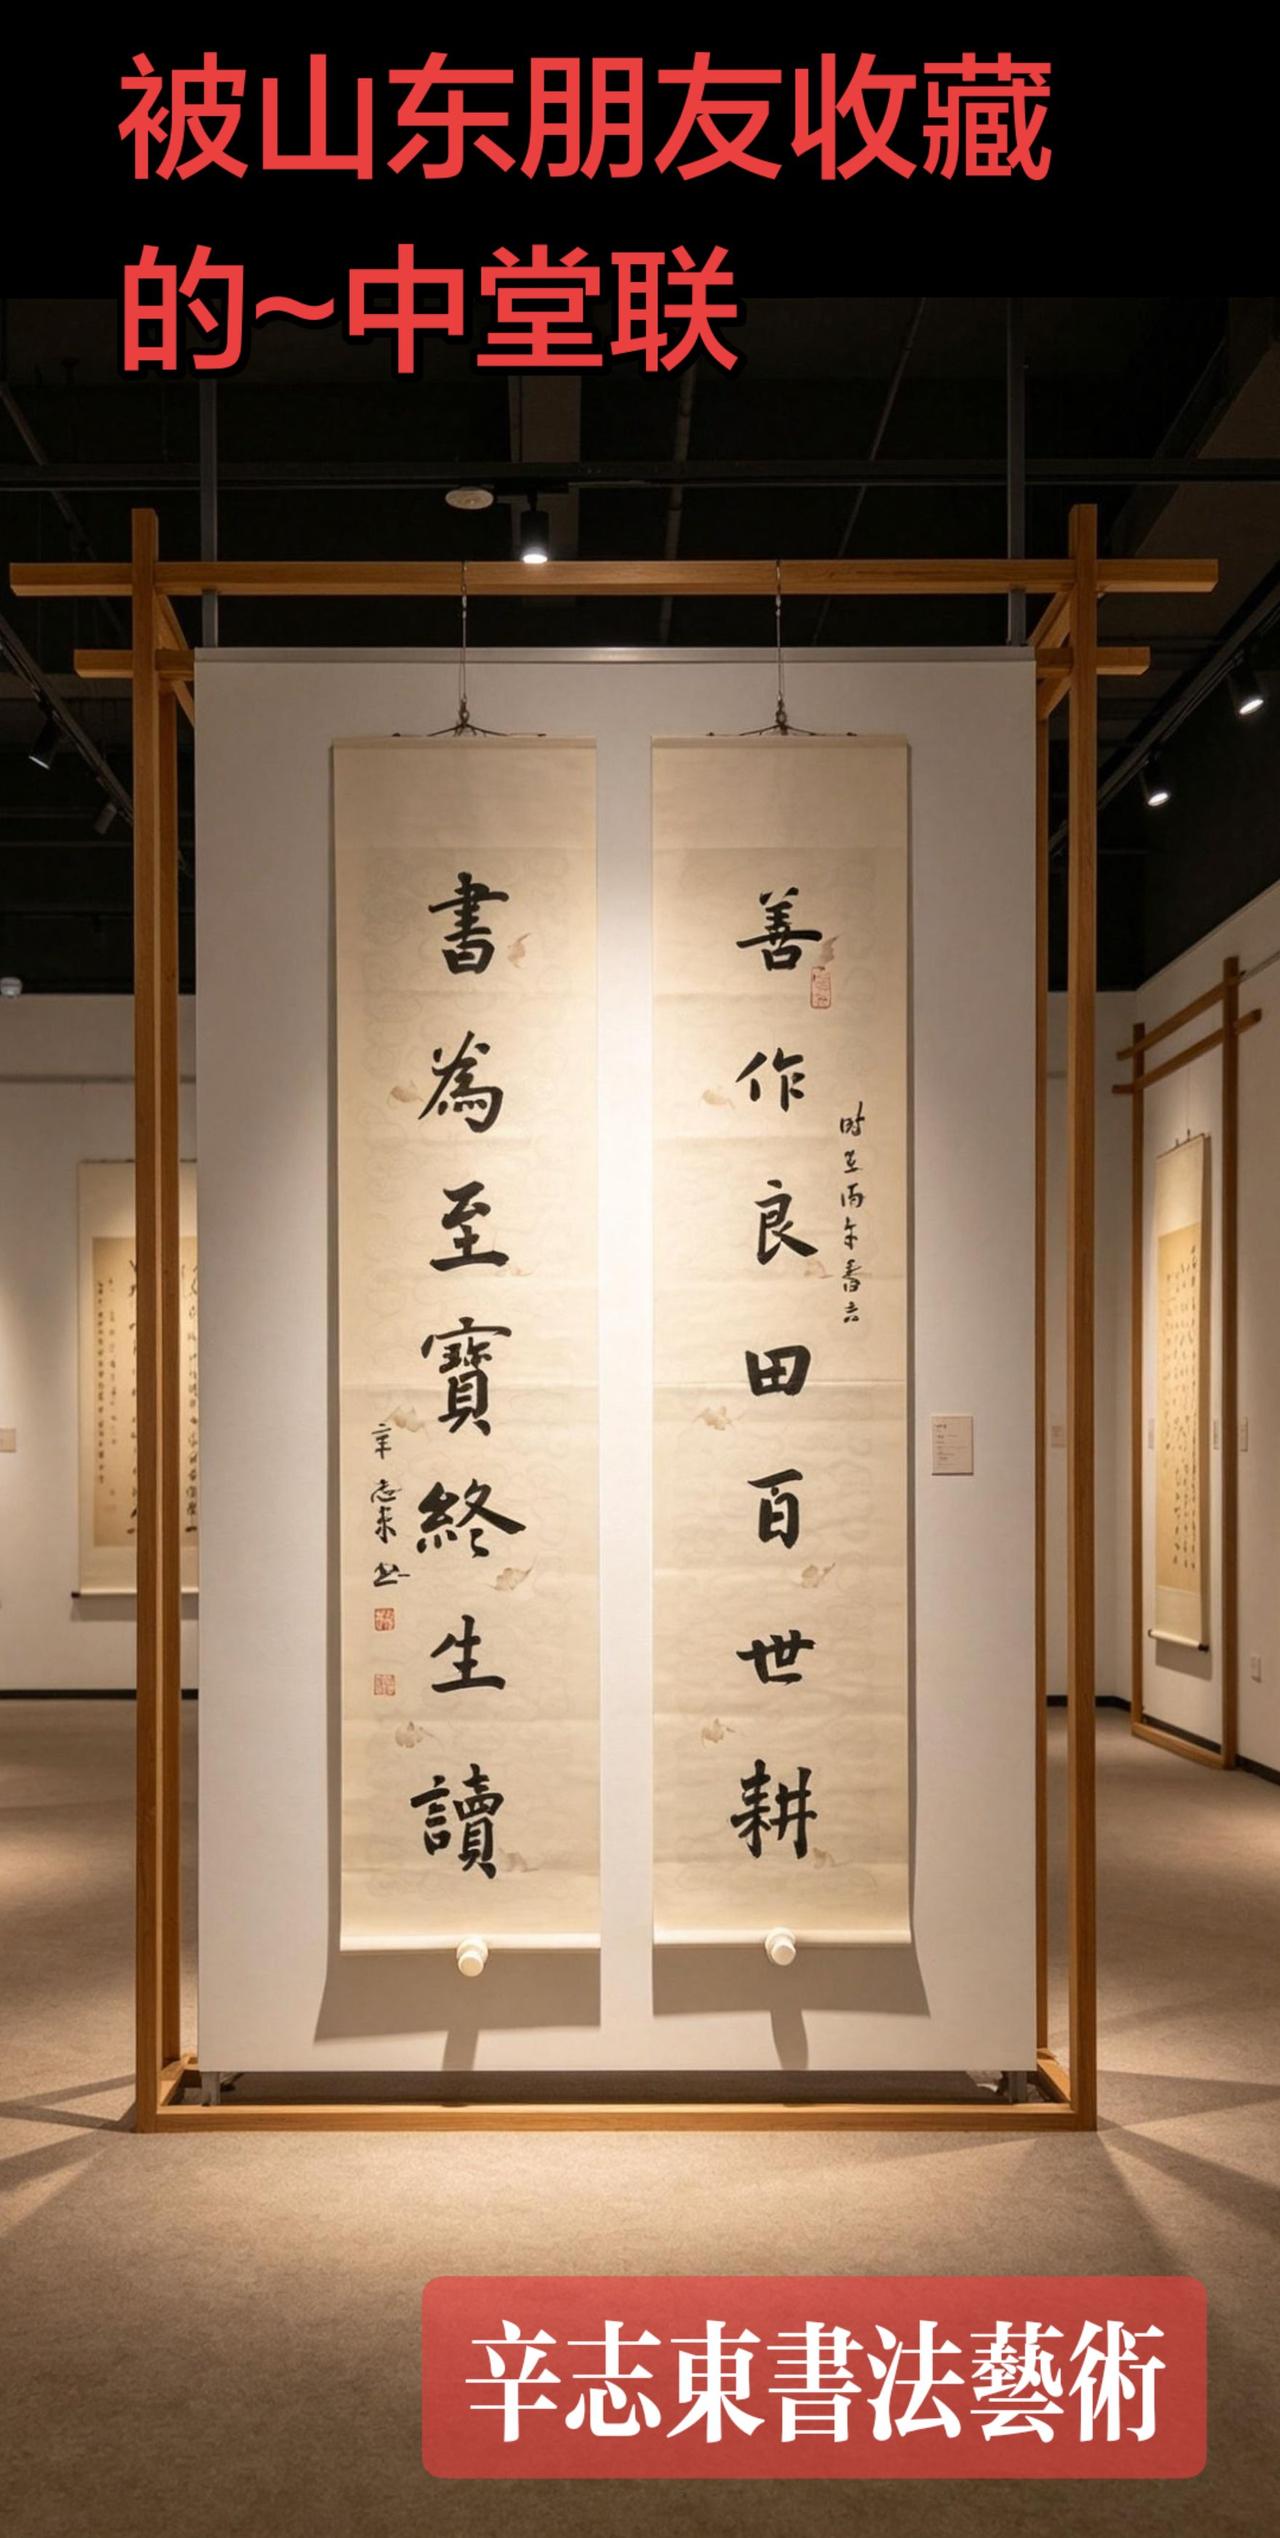 被山东朋友收藏
的~中堂联
善作良田百世耕
時在丙午春吉
書為至寶終生讀
辛志東書
辛志東書法藝術